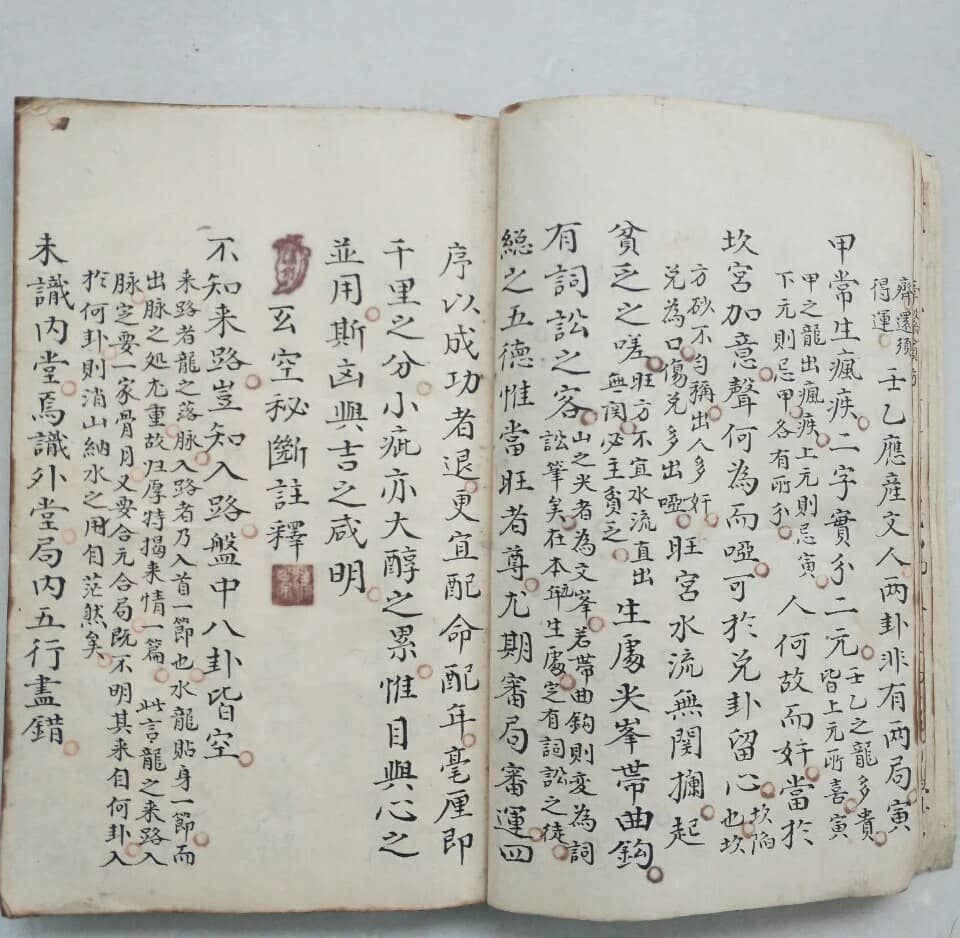 齋還須
得運
壬乙應産文人兩卦非有兩局寅
甲常生瘋疾二字實分二元
壬乙之龍多貴
皆上元所喜寅
甲之龍出瘋疾上元則忌寅
下元則忌甲各有所分
人何故而奸當於
坎宮加意聲何為而啞可於兌卦留心
坎陷
也坎
方砂不勻稱出人多奸
兌為口傷兌多出啞
旺宮水流無関攔起
貧乏之嗟
旺方不宜水流直出
無関必主貧乏
生處尖峯帶曲鈎
有詞訟之客
山之尖者為文峯若帶曲鈎則变為詞
訟筆矣在本卦生處定有詞訟之徒
緫之五德惟當旺者尊尤期審局審運四
序以成功者退更宜配命配年毫厘即
千里之分小疵亦大醇之累惟目與心之
並用斯凶與吉之咸明
玄空秘斷註釋
不知来路豈知入路盤中八卦皆空
来路者龍之落脉入路者乃入首一節也水龍貼身一節而
出脉之処尤重故归厚特揭来情一篇 此言龍之来路入
脉定要一家骨月又要合元合局既不明其来自何卦入
於何卦則消山納水之用自茫然矣
未識內堂焉識外堂局內五行盡錯